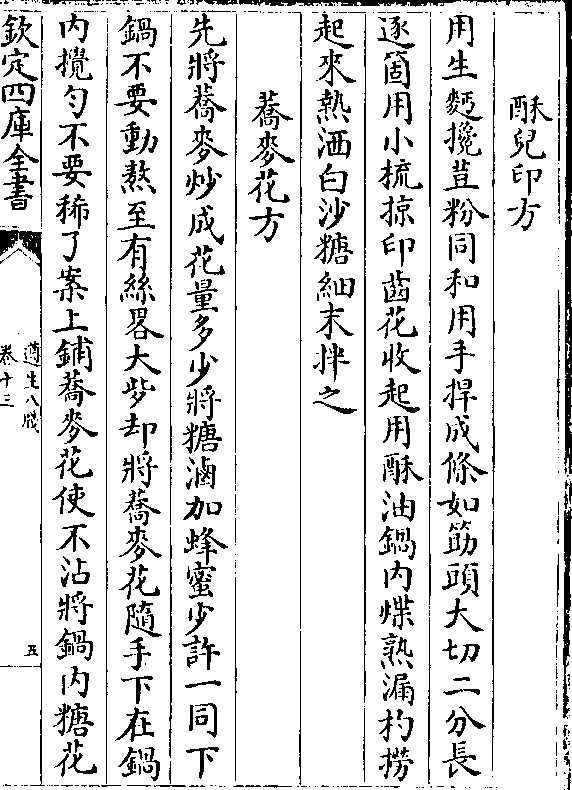 酥兒印方
用生麪攙荳粉同和用手捍成條如筯頭大切二分長
逐箇用小梳掠印齒花收起用酥油鍋內煠熟漏杓撈
起來熱洒白沙糖細末拌之
蕎麥花方
先將蕎麥炒成花量多少將糖滷加蜂蜜少許一同下
鍋不要動熬至有絲畧大些却將蕎麥花隨手下在鍋
內攪勻不要稀了案上鋪蕎麥花使不沾將鍋內糖花
欽定四庫全書
遵生八牋
卷十三
五